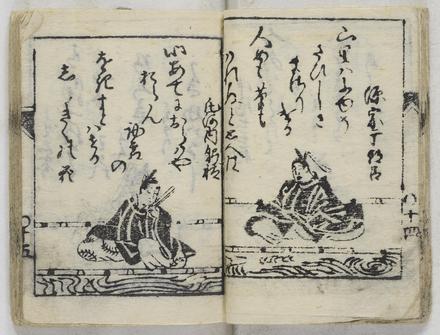 源宗于朝臣
山里は冬そ
さひしさ
まさりける
人めも草も
かれぬとおもへは
凡河内躬恒
心あてにおらはや
おらん
初霜の
をきまとはせる
しらきくの花